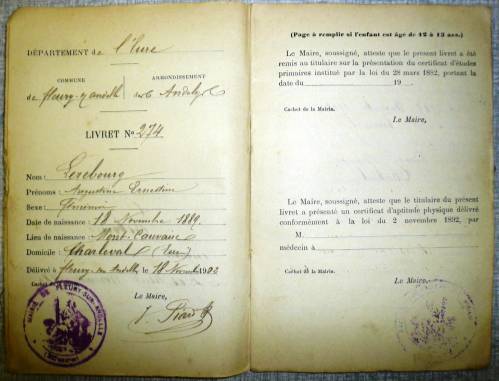 DÉPARTEMENT de l'Eure
COMMUNE
ARRONDISSEMENT
de Fleury s/ Andelle
des Andelys
LIVRET N° 274
Nom : Lerebourg
Prénoms : Augustine Ernestine
Sexe : Féminin
Date de naissance : 18 Novembre 1889.
Lieu de naissance : Mont-Cauvaire
Domicile : Charleval (Eure)
Délivré à Fleury-sur-Andelle le Novembre 1902
Cachet de
Le Maire,
MAIRIE DE FLEURY-SUR-ANDELLE
(Page à remplir si l'enfant est âgé de 12 à 13 ans.)
Le Maire, soussigné, atteste que le présent livret a été
remis au titulaire sur la présentation du certificat d'études
primaires institué par la loi du 28 mars 1882, portant la
date du 19
Cachet de la Mairie.
Le Maire,
Le Maire, soussigné, atteste que le titulaire du présent
livret a présenté un certificat d'aptitude physique délivré
conformément à la loi du 2 novembre 1892, par
M.
médecin à
Cachet de la Mairie.
Le Maire,